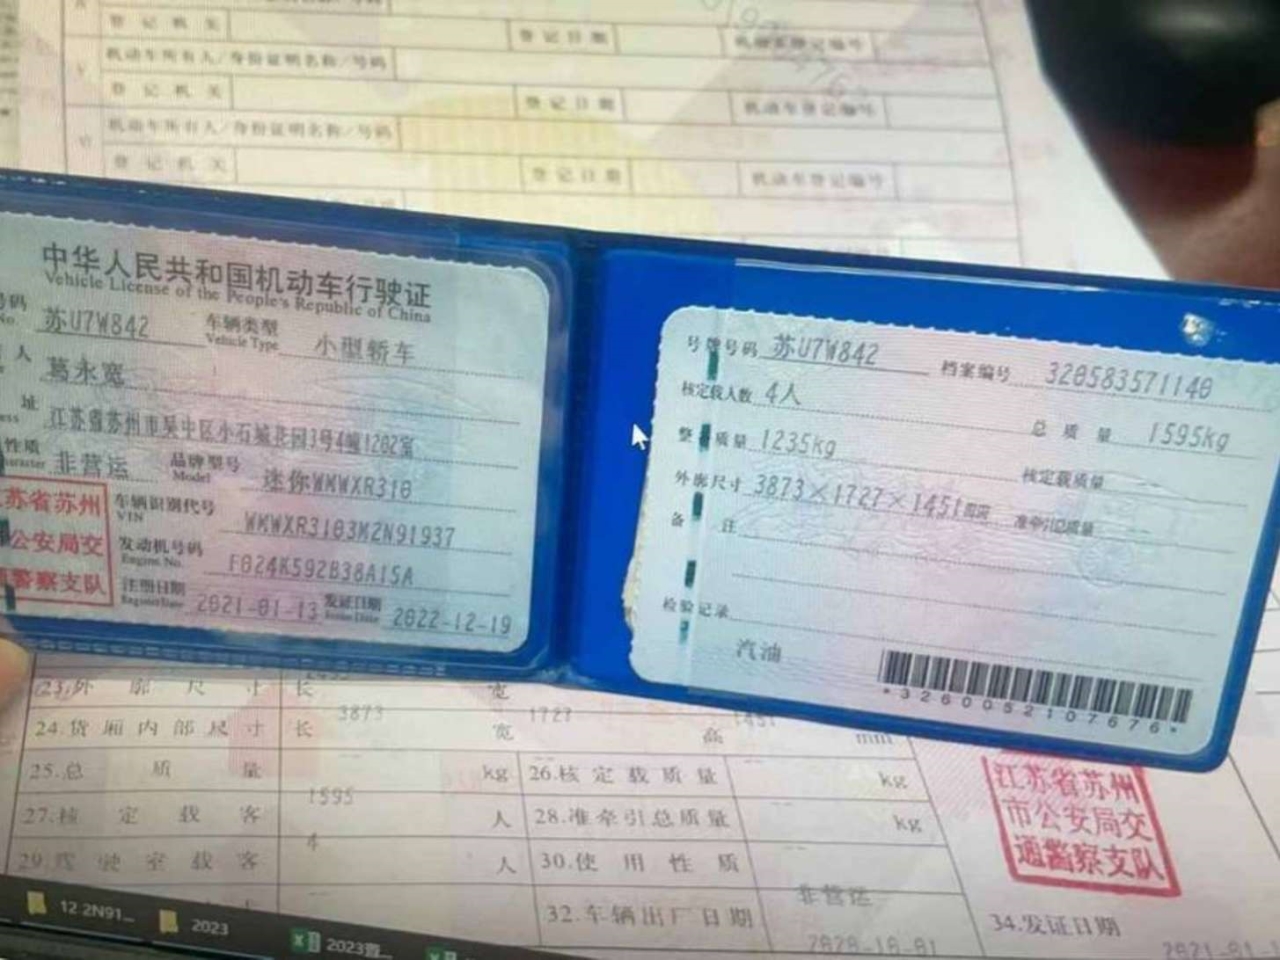 登记机关 登记日期 机动车登记编号
机动车所有人/身份证明名称/号码
登记机关 登记日期 机动车登记编号
机动车所有人/身份证明名称/号码
登记机关 登记日期 机动车登记编号
中华人民共和国机动车行驶证
Vehicle License of the People's Republic of China
号码 苏U7W842 车辆类型 小型轿车
No. Vehicle Type
人 葛永宽
址 江苏省苏州市吴中区小石城花园3号4幢1202室
性质 非营运 品牌型号 迷你WMWXR310
Model
苏省苏州
公安局交
警察支队
车辆识别代号 WMWXR3103M2N91937
VIN
发动机号码 F024K592B38A15A
Engine No.
注册日期 2021-01-13 发证日期 2022-12-19
Register Date Issue Date
号牌号码 苏U7W842 档案编号 320583571140
核定载人数 4人 总质量 1595kg
整备质量 1235kg 核定载质量
外廓尺寸 3873×1727×1451 准牵引总质量 --
备注
检验记录
汽油
*3260052107676*
23.外廓尺寸 长 3873 宽 1727 1451
24.货厢内部尺寸 长 宽 高 mm
25.总质量 1595 kg 26.核定载质量 -- kg
27.核定载客 4 人 28.准牵引总质量 -- kg
29.驾驶室载客 人 30.使用性质 非营运
32.车辆出厂日期 2020-10-01
江苏省苏州
市公安局交
通警察支队
34.发证日期 2021-01-1
12 2N91...
2023